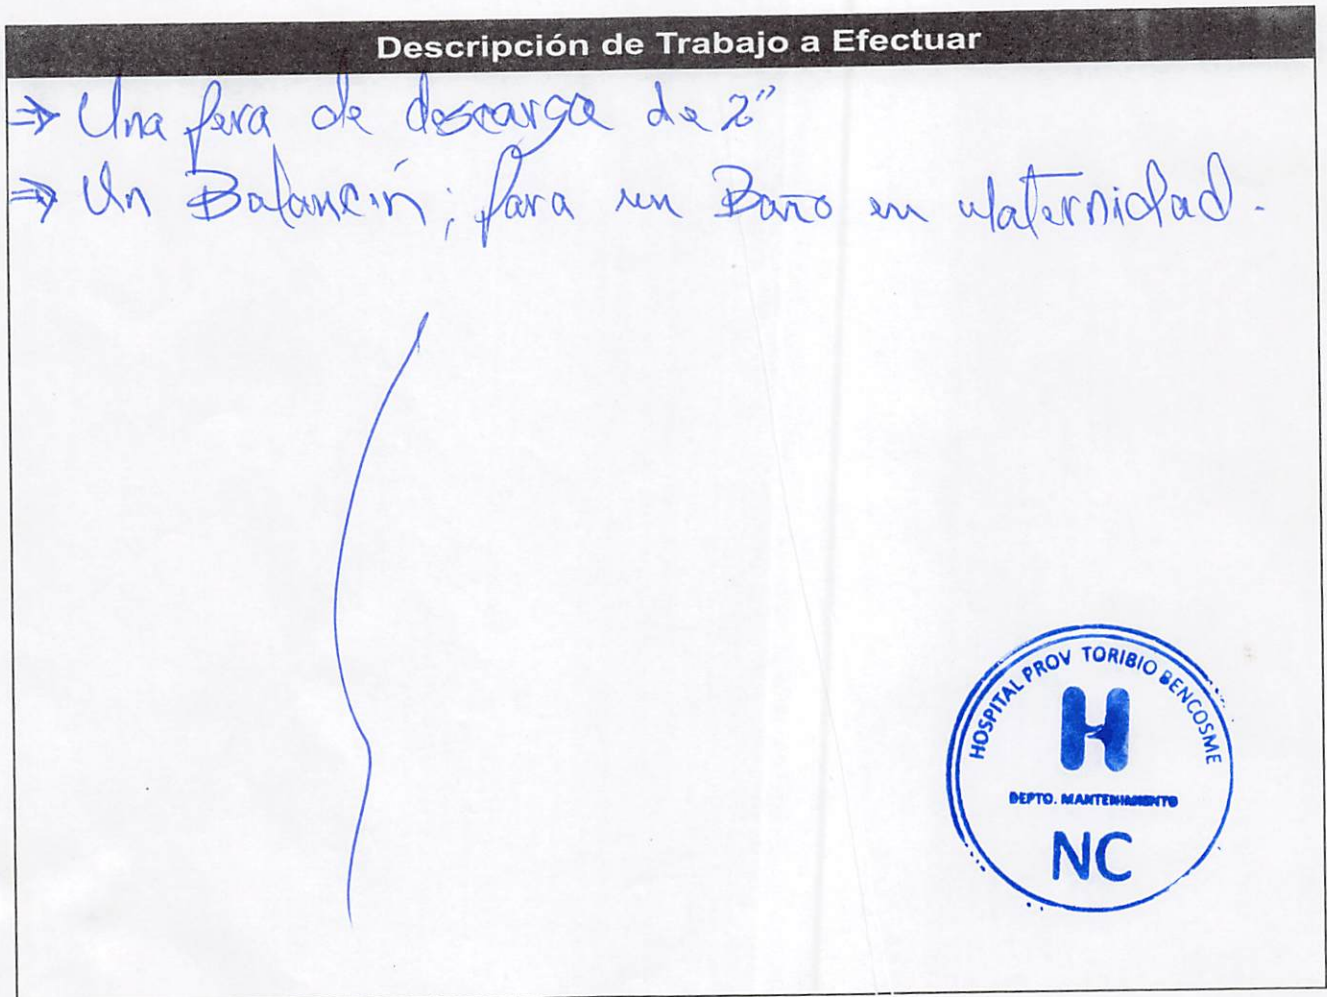 Descripción de Trabajo a Efectuar
⇒ Una pera de descarga de 2"
⇒ Un Balancín; para un Baño en maternidad.
HOSPITAL PROV TORIBIO BENCOSME
H
DEPTO. MANTENIMIENTO
NC